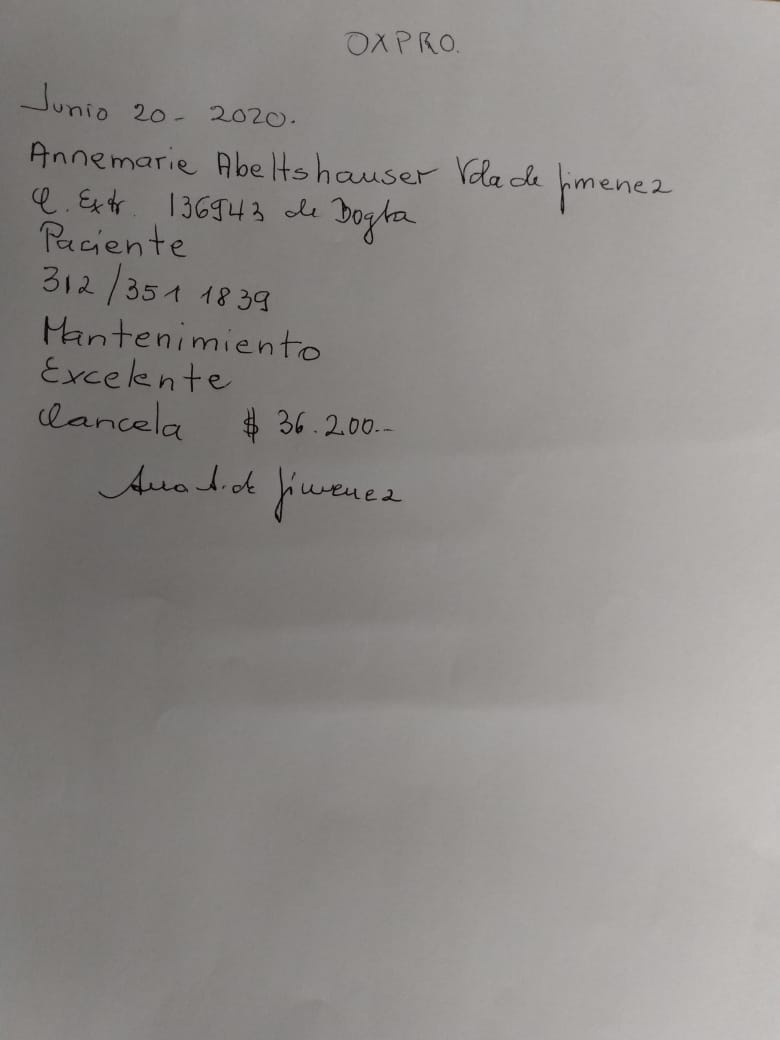 OXPRO.
Junio 20 - 2020.
Annemarie Abeltshauser Vda de Jimenez
C. Extr. 136943 de Bogta
Paciente
312/351 1839
Mantenimiento
Excelente
Cancela $ 36.200.--
de Jimenez